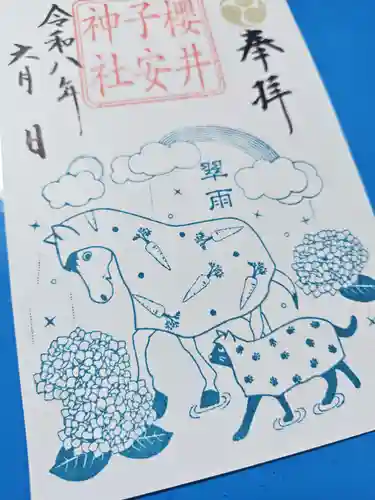 奉拝
櫻井
子安
神社
令和八年
六月 日
翠雨